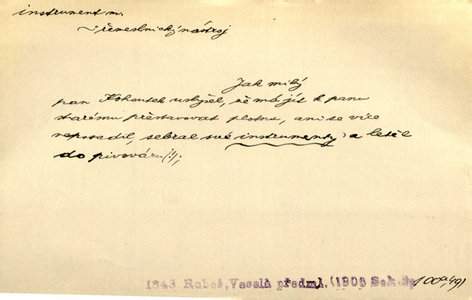 instrument m.
řemeslnický nástroj
Jak milý
pan Kohoutek uslyšel, že má jít k panu
starému přestavovat plotnu, ani se více
neposadil, sebral své instrumenty a letěl
do pivováru(!);
1843 Rubeš, Veselá předml. (1909 Sek. Sp